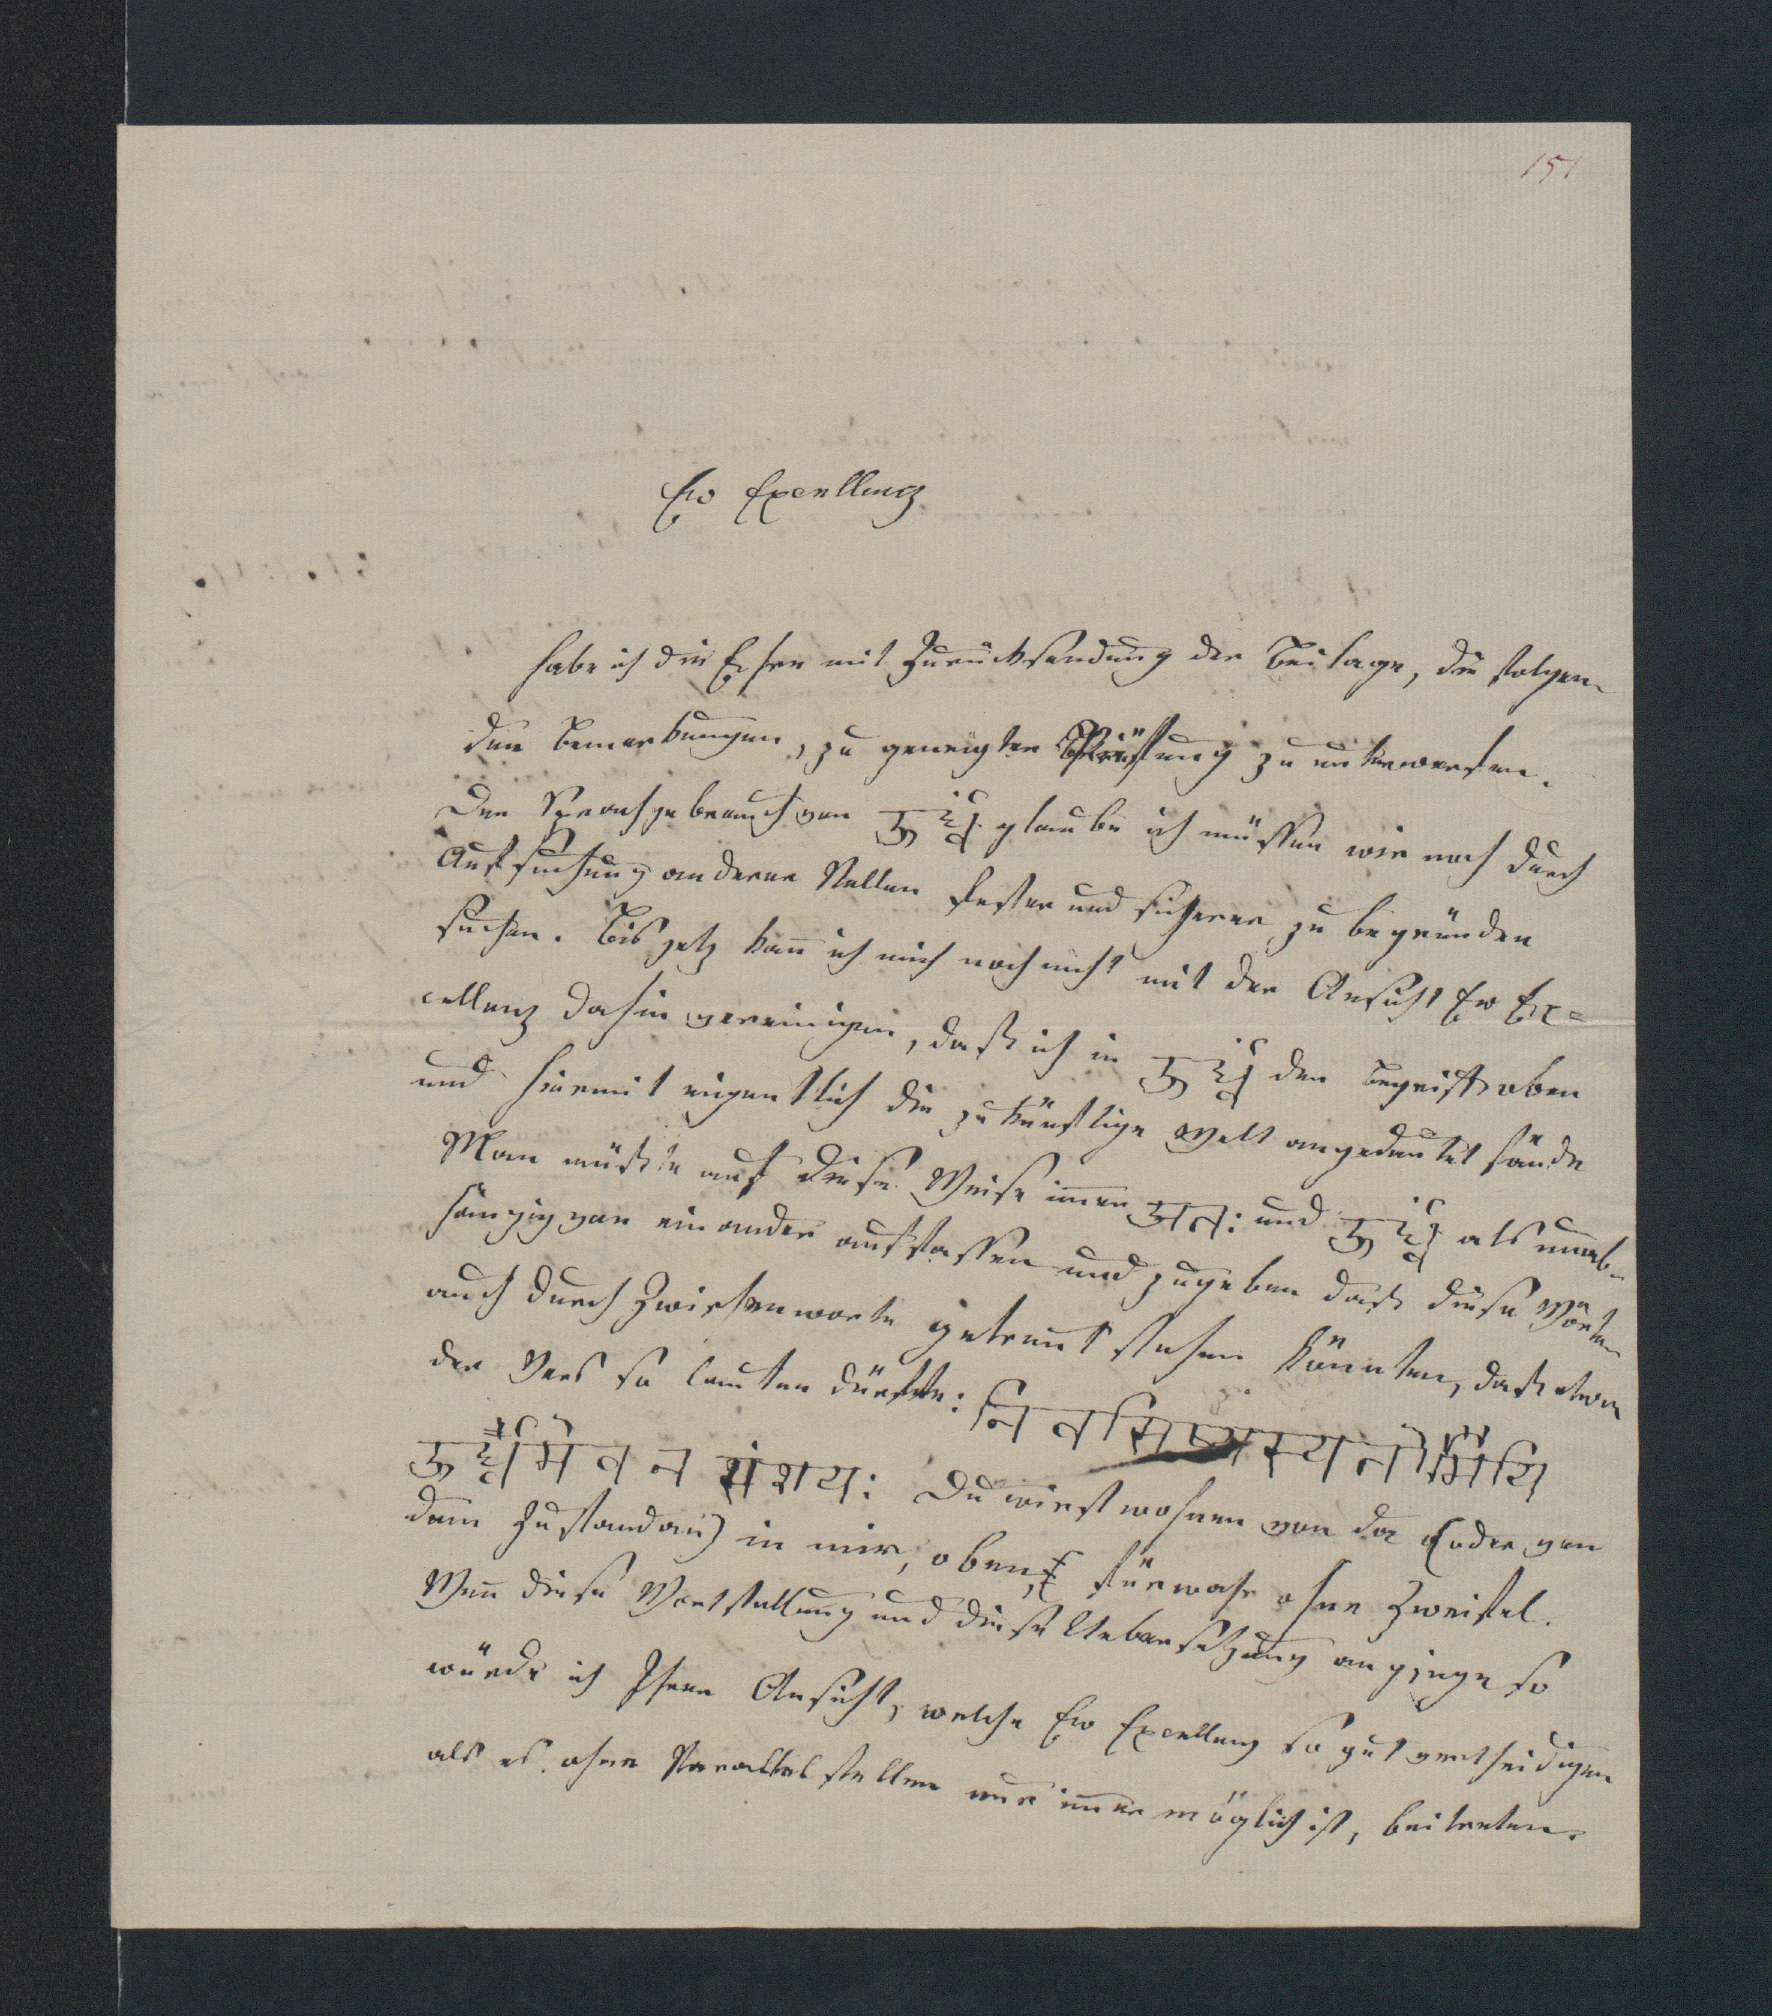 151
Ew Excellenz
habe ich die Ehre mit Zurücksendung der Beilage, die folgen-
den Bemerkungen, zu geneigter Prüfung zu unterwerfen.
Den Sprachgebrauch von ऊर्द्ध्वं glaube ich müssen wir noch durch
Aufsuchung anderer Stellen fester und sicherer zu begründen
suchen. Bis jetz kan̅ ich mich noch nicht mit der Ansicht Ew Ex=
cellenz dahin vereinigen, daß ich in ऊर्द्ध्वं den Begriff oben
und hiermit eigentlich die zukünftige Welt angedeutet fände
Man müßte auf diese Weise im̅er अतः und ऊर्द्ध्वं als unab-
hängig von einander auffassen und zugeben daß diese Wörter
auch durch Zwischenworte getren̅t stehen könnten, daß etwa
der Vers so lauten dürfte: निवसिष्यस्यतो मयि
ऊर्द्ध्वमेव न संशयः Du wirst wohnen von da (oder von
dem Zustand an) in mir, oben, fürwahr ohne Zweifel.
Wen̅ diese Vorstellung und diese Uebersetzung anginge so
würde ich Ihrer Ansicht, welche Ew Excellenz so gut vertheidigen
als es ohne Parallelstellen nur im̅er möglich ist, beitreten.